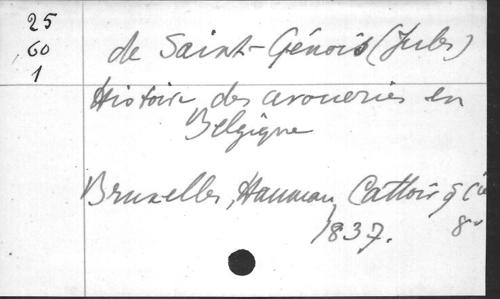 25
60
1
de Saint-Génois (Jules)
Histoire des avoueries en
Belgique
Bruxelles, Hauman, Cattoir & Cie
1837. 8°